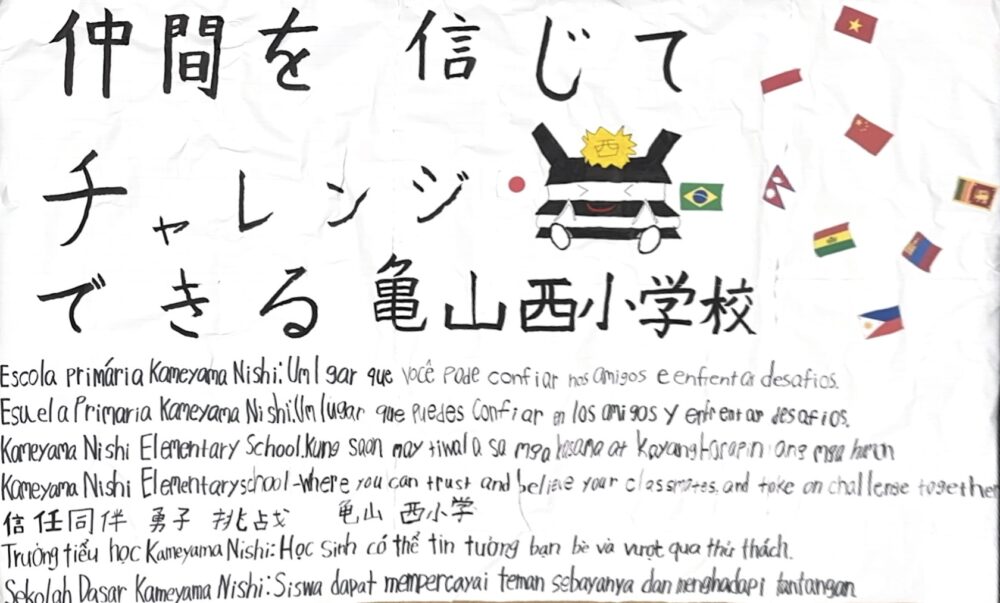 仲間を 信じて
チャレンジ
西
できる亀山西小学校
Escola primária Kameyama Nishi: Um l gar que você pode confiar nos amigos e enfrentar desafios.
Esuela Primaria Kameyama Nishi. Um lugar que puedes confiar en los amigos y enfrentar desafios.
Kameyama Nishi Elementary School. Kung saan may tiwala sa mga kasama at kayang ang mga
Kameyama Nishi Elementary school - where you can trust and believe your classmates, and take on challenge together
信任同伴 勇子挑战 亀山 西小学
Trường tiểu học Kameyama Nishi: Học sinh có thể tin tưởng bạn bè và vượt qua thử thách.
Sekolah Dasar Kameyama Nishi: Siswa dapat mempercayai teman sebayanya dan menghadapi tantangan